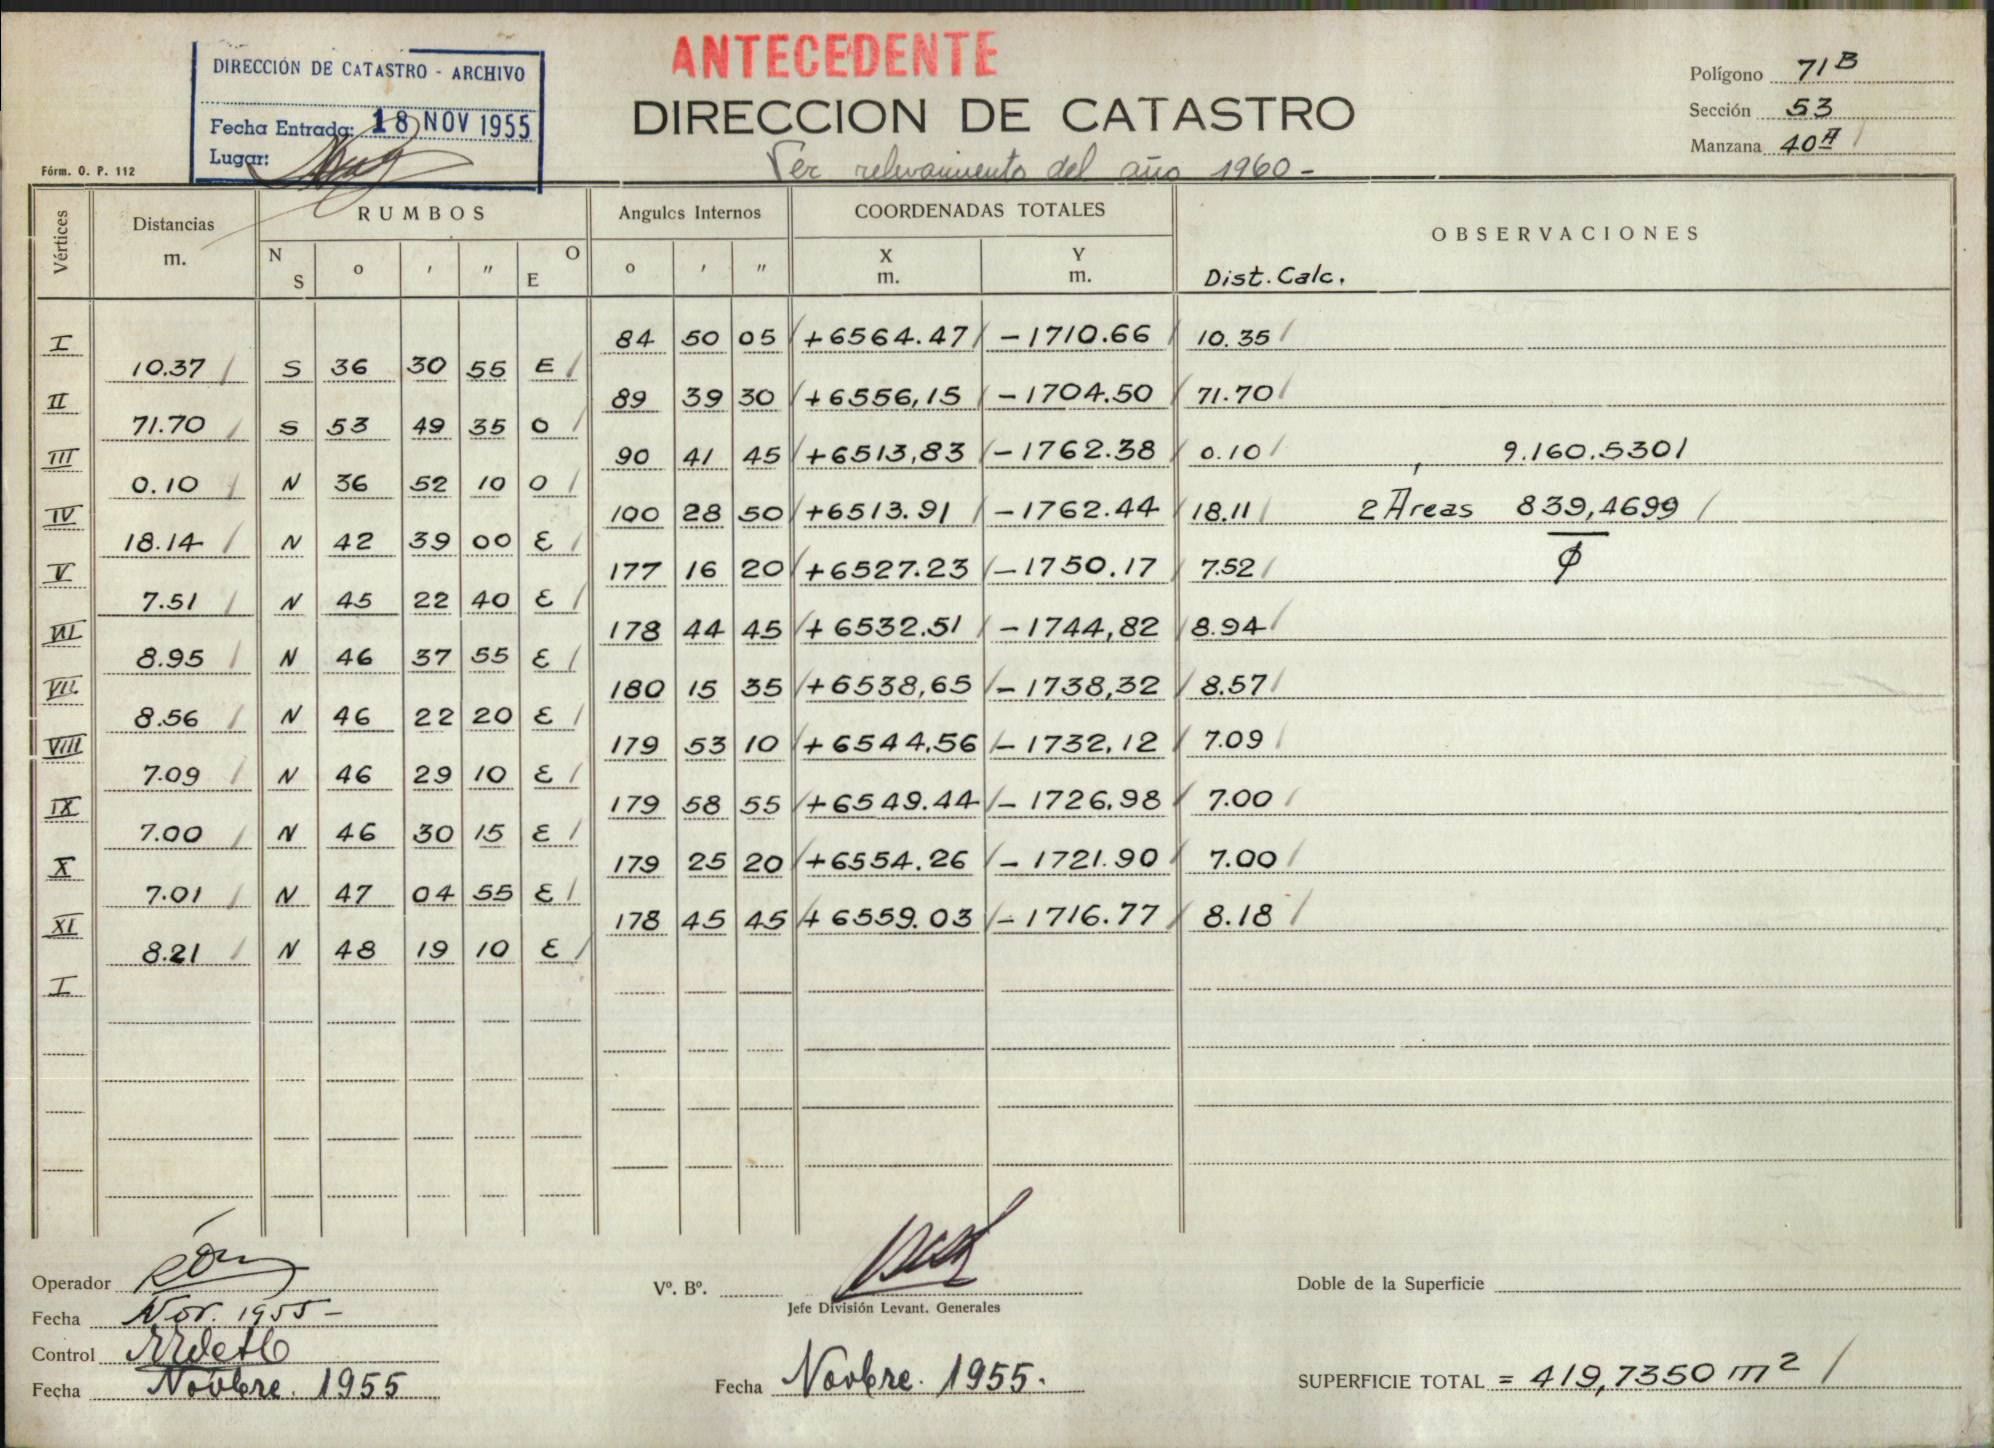 ANTECEDENTE
DIRECCIÓN DE CATASTRO - ARCHIVO
Fecha Entrada: 18 NOV 1955
Lugar:
DIRECCION DE CATASTRO
Ver relevamiento del año 1960 -
Polígono 71 B
Sección 53
Manzana 40 A /
Fórm. O. P. 112
Vértices Distancias m. RUMBOS N S ° ' " O E Angulos Internos ° ' " COORDENADAS TOTALES X m. Y m. OBSERVACIONES
Dist. Calc.
I 84 50 05 / +6564.47 / -1710.66 / 10.35 /
10.37 / S 36 30 55 E /
II 89 39 30 / +6556,15 / -1704.50 / 71.70 /
71.70 / S 53 49 35 O /
III 90 41 45 / +6513,83 / -1762.38 / 0.10 / 9.160.5301
0.10 / N 36 52 10 O /
IV 100 28 50 / +6513.91 / -1762.44 / 18.11 / 2 Áreas 839,4699 /
18.14 / N 42 39 00 E /
V 177 16 20 / +6527.23 / -1750.17 / 7.52 /
7.51 / N 45 22 40 E /
VI 178 44 45 / +6532.51 / -1744,82 / 8.94 /
8.95 / N 46 37 55 E /
VII 180 15 35 / +6538,65 / -1738,32 / 8.57 /
8.56 / N 46 22 20 E /
VIII 179 53 10 / +6544,56 / -1732,12 / 7.09 /
7.09 / N 46 29 10 E /
IX 179 58 55 / +6549.44 / -1726.98 / 7.00 /
7.00 / N 46 30 15 E /
X 179 25 20 / +6554.26 / -1721.90 / 7.00 /
7.01 / N 47 04 55 E /
XI 178 45 45 / +6559.03 / -1716.77 / 8.18 /
8.21 / N 48 19 10 E /
I
Operador
Fecha Nov. 1955 -
Control
Fecha Novbre. 1955
Vº. Bº.
Jefe División Levant. Generales
Fecha Novbre. 1955.
Doble de la Superficie
SUPERFICIE TOTAL = 419,7350 m² /